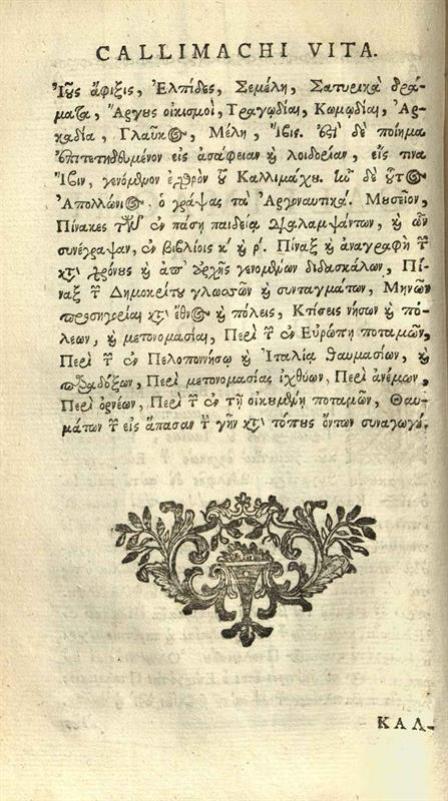 CALLIMACHI VITA.
Ἰοῦς ἄφιξις, Ἐλπίδες, Σεμέλη, Σατυρικὰ δρά-
ματα, Ἄργους οἰκισμοὶ, Τραγωδίαι, Κωμωδίαι, Ἀρ-
καδία, Γλαῦκος, Μέλη, Ἴβις. ἔστι δὲ ποίημα
ἐπιτετηδευμένον εἰς ἀσάφειαν καὶ λοιδορίαν, εἴς τινα
Ἴβιν, γενόμενον ἐχθρὸν τοῦ Καλλιμάχου. ἦν δὲ οὗτος
Ἀπολλώνιος ὁ γράψας τὰ Ἀργοναυτικά. Μουσεῖον,
Πίνακες τῶν ἐν πάσῃ παιδείᾳ διαλαμψάντων, καὶ ὧν
συνέγραψαν, ἐν βιβλίοις κ΄ καὶ ρ΄. Πίναξ καὶ ἀναγραφὴ τῶν
κατὰ χρόνους καὶ ἀπ᾽ ἀρχῆς γενομένων διδασκάλων, Πί-
ναξ τῶν Δημοκρίτου γλωσσῶν καὶ συνταγμάτων, Μηνῶν
προσηγορίαι κατὰ ἔθνος καὶ πόλεις, Κτίσεις νήσων καὶ πό-
λεων, καὶ μετονομασίαι, Περὶ τῶν ἐν Εὐρώπῃ ποταμῶν,
Περὶ τῶν ἐν Πελοποννήσῳ καὶ Ἰταλίᾳ θαυμασίων, καὶ
παραδόξων, Περὶ μετονομασίας ἰχθύων, Περὶ ἀνέμων,
Περὶ ὀρνέων, Περὶ τῶν ἐν τῇ οἰκουμένῃ ποταμῶν, Θαυ-
μάτων τῶν εἰς ἅπασαν τὴν γῆν κατὰ τόπους ὄντων συναγωγή.
ΚΑΛ-